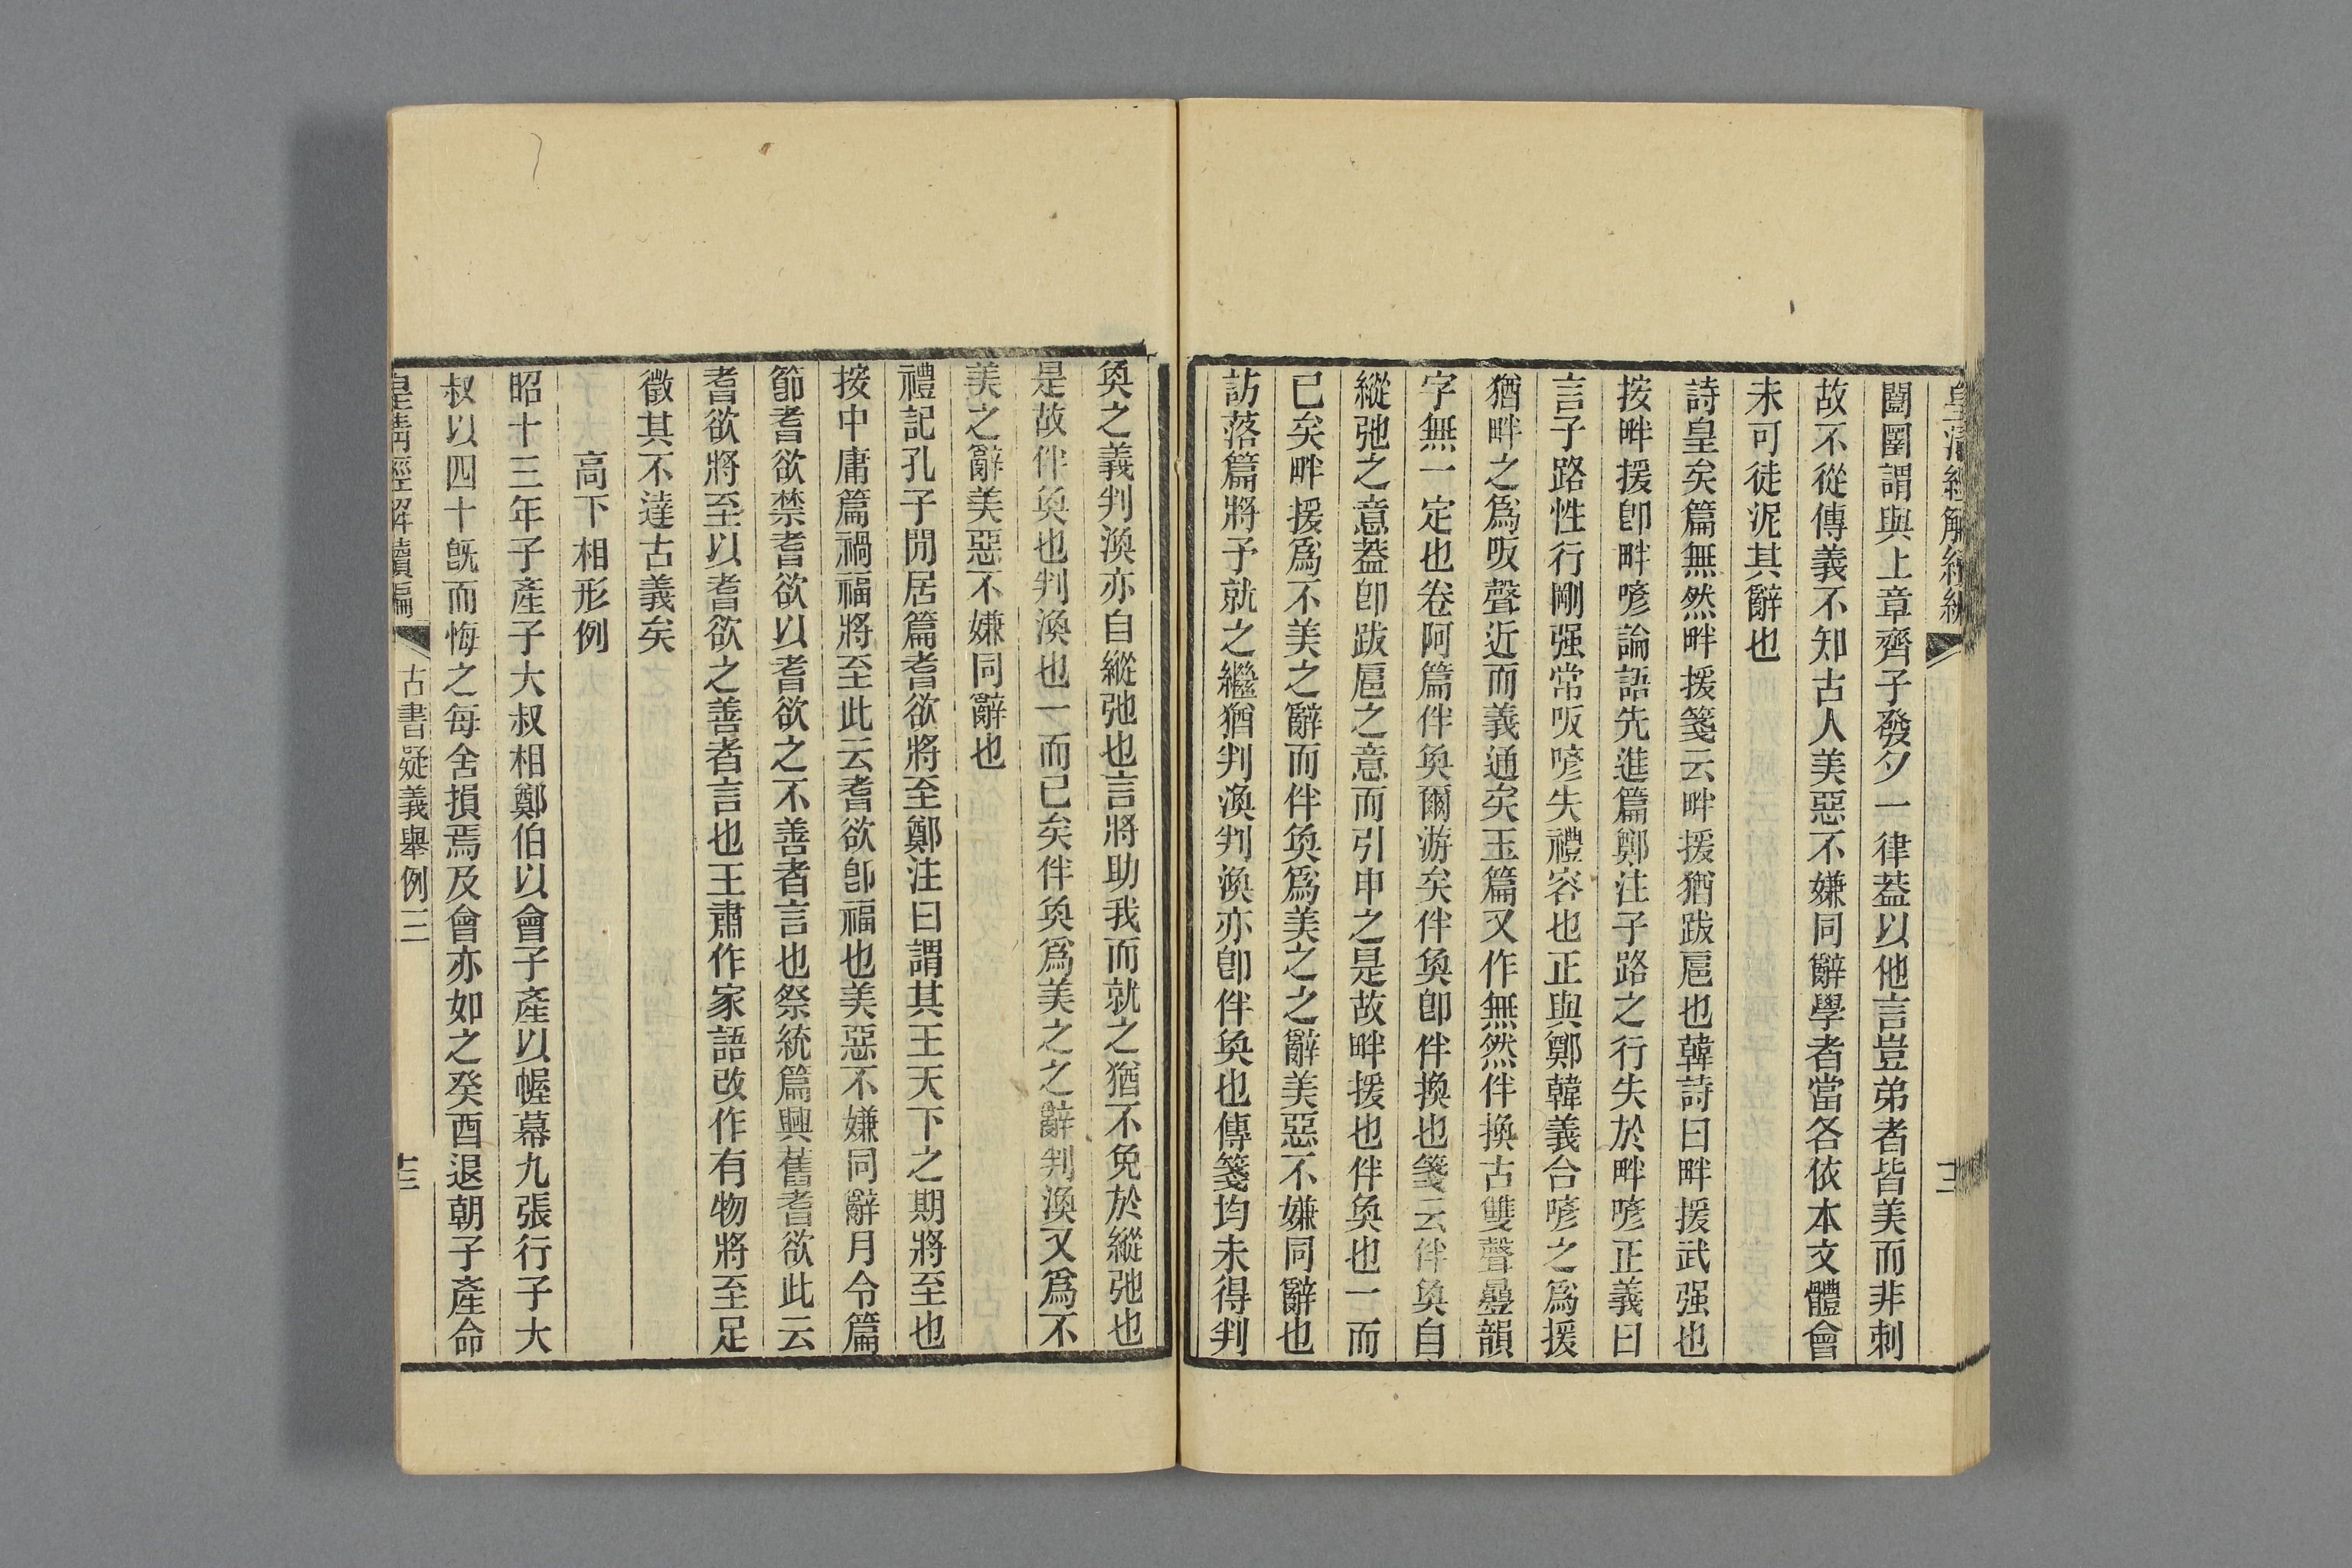 皇清經解續編
闓圛謂與上章齊子發夕一律蓋以他言豈弟者皆美而非刺
故不從傳義不知古人美惡不嫌同辭學者當各依本文體會
未可徒泥其辭也
詩皇矣篇無然畔援箋云畔援猶跋扈也韓詩曰畔援武强也
按畔援卽畔喭論語先進篇鄭注子路之行失於畔喭正義曰
言子路性行剛强常吸喭失禮容也正與鄭韓義合喭之爲援
猶畔之爲吸聲近而義通矣玉篇又作無然伴換古雙聲疊韻
字無一定也卷阿篇伴奐爾游矣伴奐卽伴換也箋云伴奐自
縱弛之意蓋卽跋扈之意而引申之是故畔援也伴奐也一而
已矣畔援爲不美之辭而伴奐爲美之之辭美惡不嫌同辭也
訪落篇將予就之繼猶判渙判渙亦卽伴奐也傳箋均未得判
奐之義判渙亦自縱弛也言將助我而就之猶不免於縱弛也
是故伴奐也判渙也一而已矣伴奐爲美之之辭判渙又爲不
美之辭美惡不嫌同辭也
禮記孔子閒居篇耆欲將至鄭注曰謂其王天下之期將至也
按中庸篇禍福將至此云耆欲卽福也美惡不嫌同辭月令篇
節耆欲禁耆欲以耆欲之不善者言也祭統篇興舊耆欲此云
耆欲將至以耆欲之善者言也王肅作家語改作有物將至足
徵其不達古義矣
高下相形例
昭十三年子產子大叔相鄭伯以會子產以幄幕九張行子大
叔以四十旣而悔之每舍損焉及會亦如之癸酉退朝子產命
皇清經解續編 古書疑義舉例三 十三